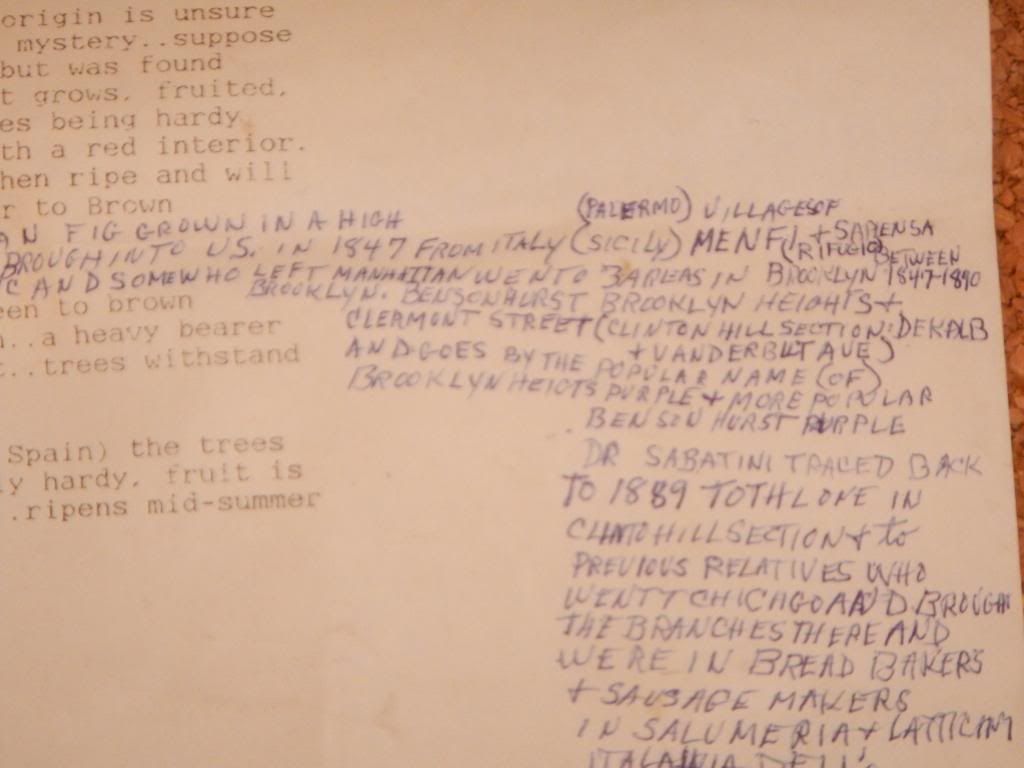 origin is unsure
mystery..suppose
but was found
t grows, fruited,
es being hardy
th a red interior.
hen ripe and will
r to Brown
AN FIG GROWN IN A HIGH
(PALERMO) VILLAGES OF
BROUGH INTO U.S. IN 1847 FROM ITALY (SICILY) MENFI + SAPENSA
(RIFUGIO) BETWEEN
C AND SOME WHO LEFT MANHATTAN WENT TO 3 AREAS IN BROOKLYN 1847-1890
BROOKLYN. BENSONHURST BROOKLYN HEIGHTS +
een to brown
CLERMONT STREET (CLINTON HILL SECTION: DEKALB
..a heavy bearer
+ VANDERBILT AVE)
t..trees withstand
AND GOES BY THE POPULAR NAME (OF)
BROOKLYN HEIGTS PURPLE + MORE POPULAR
BENSONHURST PURPLE
Spain) the trees
DR SABATINI TRACED BACK
y hardy, fruit is
TO 1889 TO TH LOVE IN
.ripens mid-summer
CLINTO HILL SECTION + to
PREVIOUS RELATIVES WHO
WENT T CHICAGO AND BROUGH
THE BRANCHES THERE AND
WERE IN BREAD BAKERS
+ SAUSAGE MAKERS
IN SALUMERIA + LATTICINI
DELI